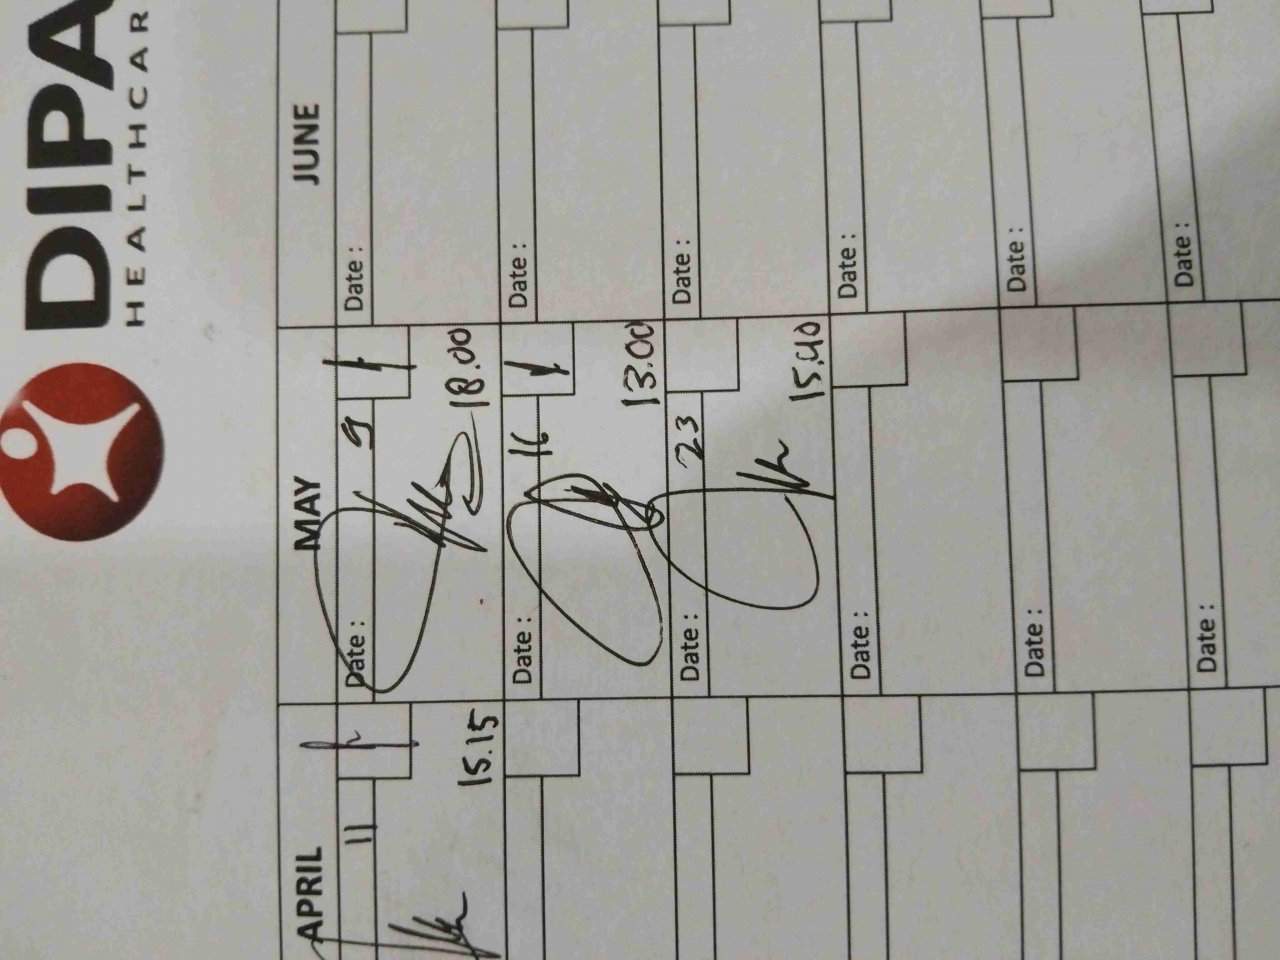 DIPA
HEALTHCAR
APRIL
MAY
JUNE
11
15.15
Date : 9
18.00
Date :
Date : 16
13.00
Date :
Date : 23
15.40
Date :
Date :
Date :
Date :
Date :
Date :
Date :